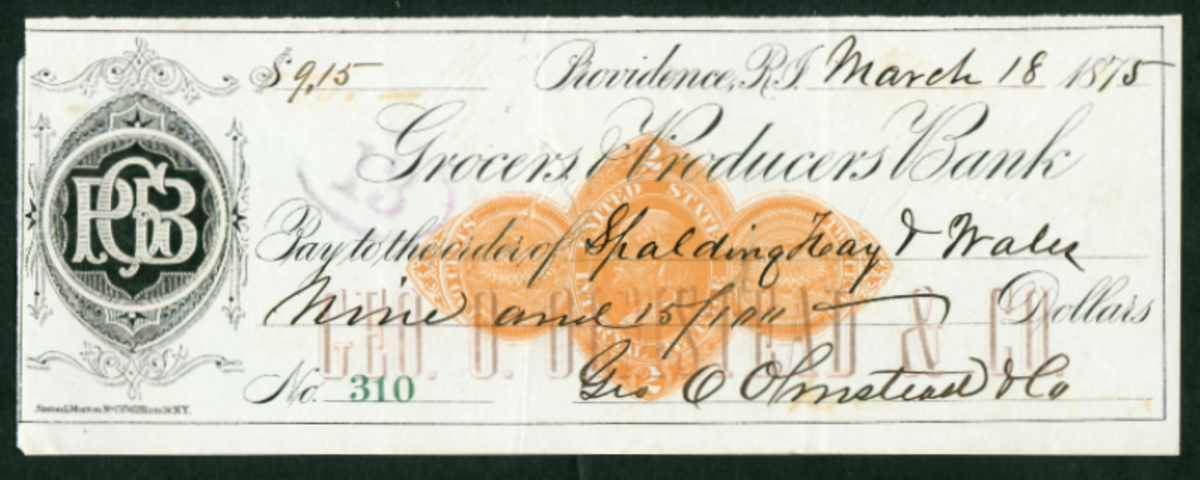 $ 9,15 Providence, R.I. March 18 1875
Grocers & Producers Bank
Pay to the order of Spalding Hay & Wales
Nine and 15/100 Dollars
GEO. O. OLMSTEAD & CO.
No. 310 Geo O Olmstead & Co
PGB
2
UNITED STATES
2